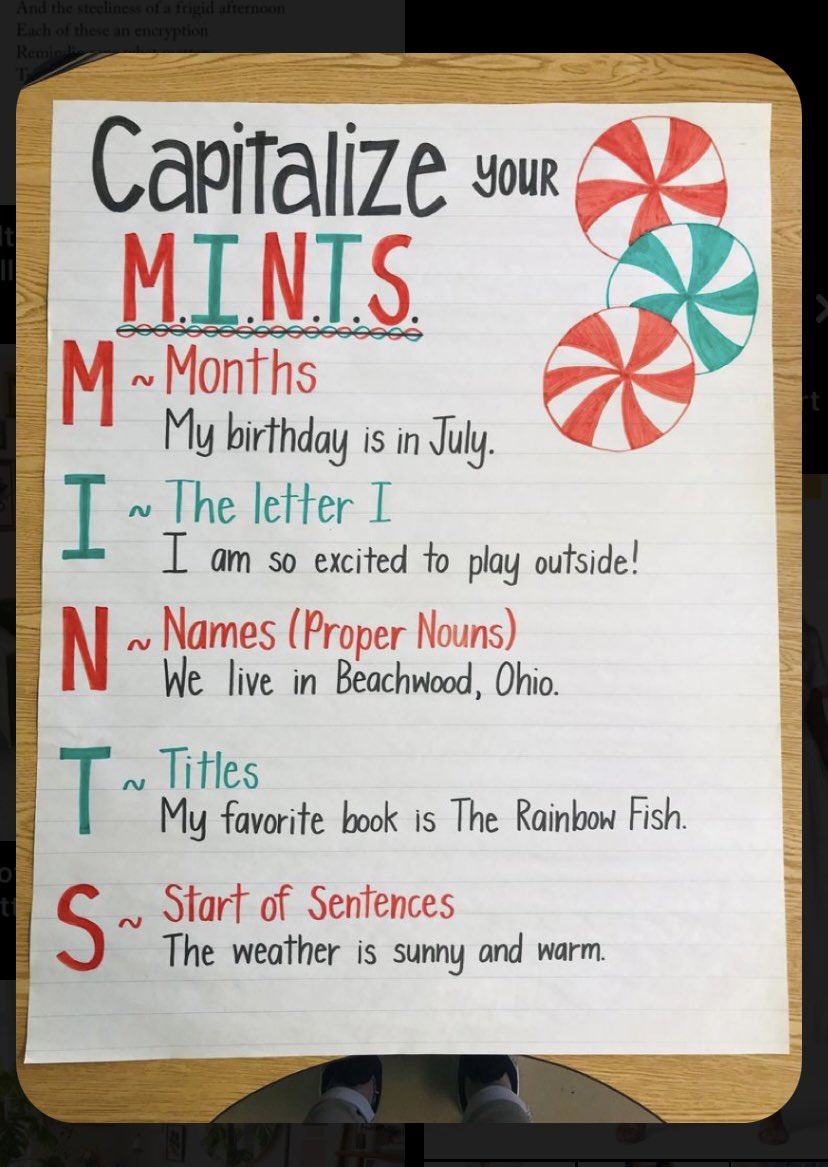 And the steeliness of a frigid afternoon
Each of these an encryption
Capitalize YOUR
M.I.N.T.S.
M ~ Months
My birthday is in July.
I ~ The letter I
I am so excited to play outside!
N ~ Names (Proper Nouns)
We live in Beachwood, Ohio.
T ~ Titles
My favorite book is The Rainbow Fish.
S ~ Start of Sentences
The weather is sunny and warm.